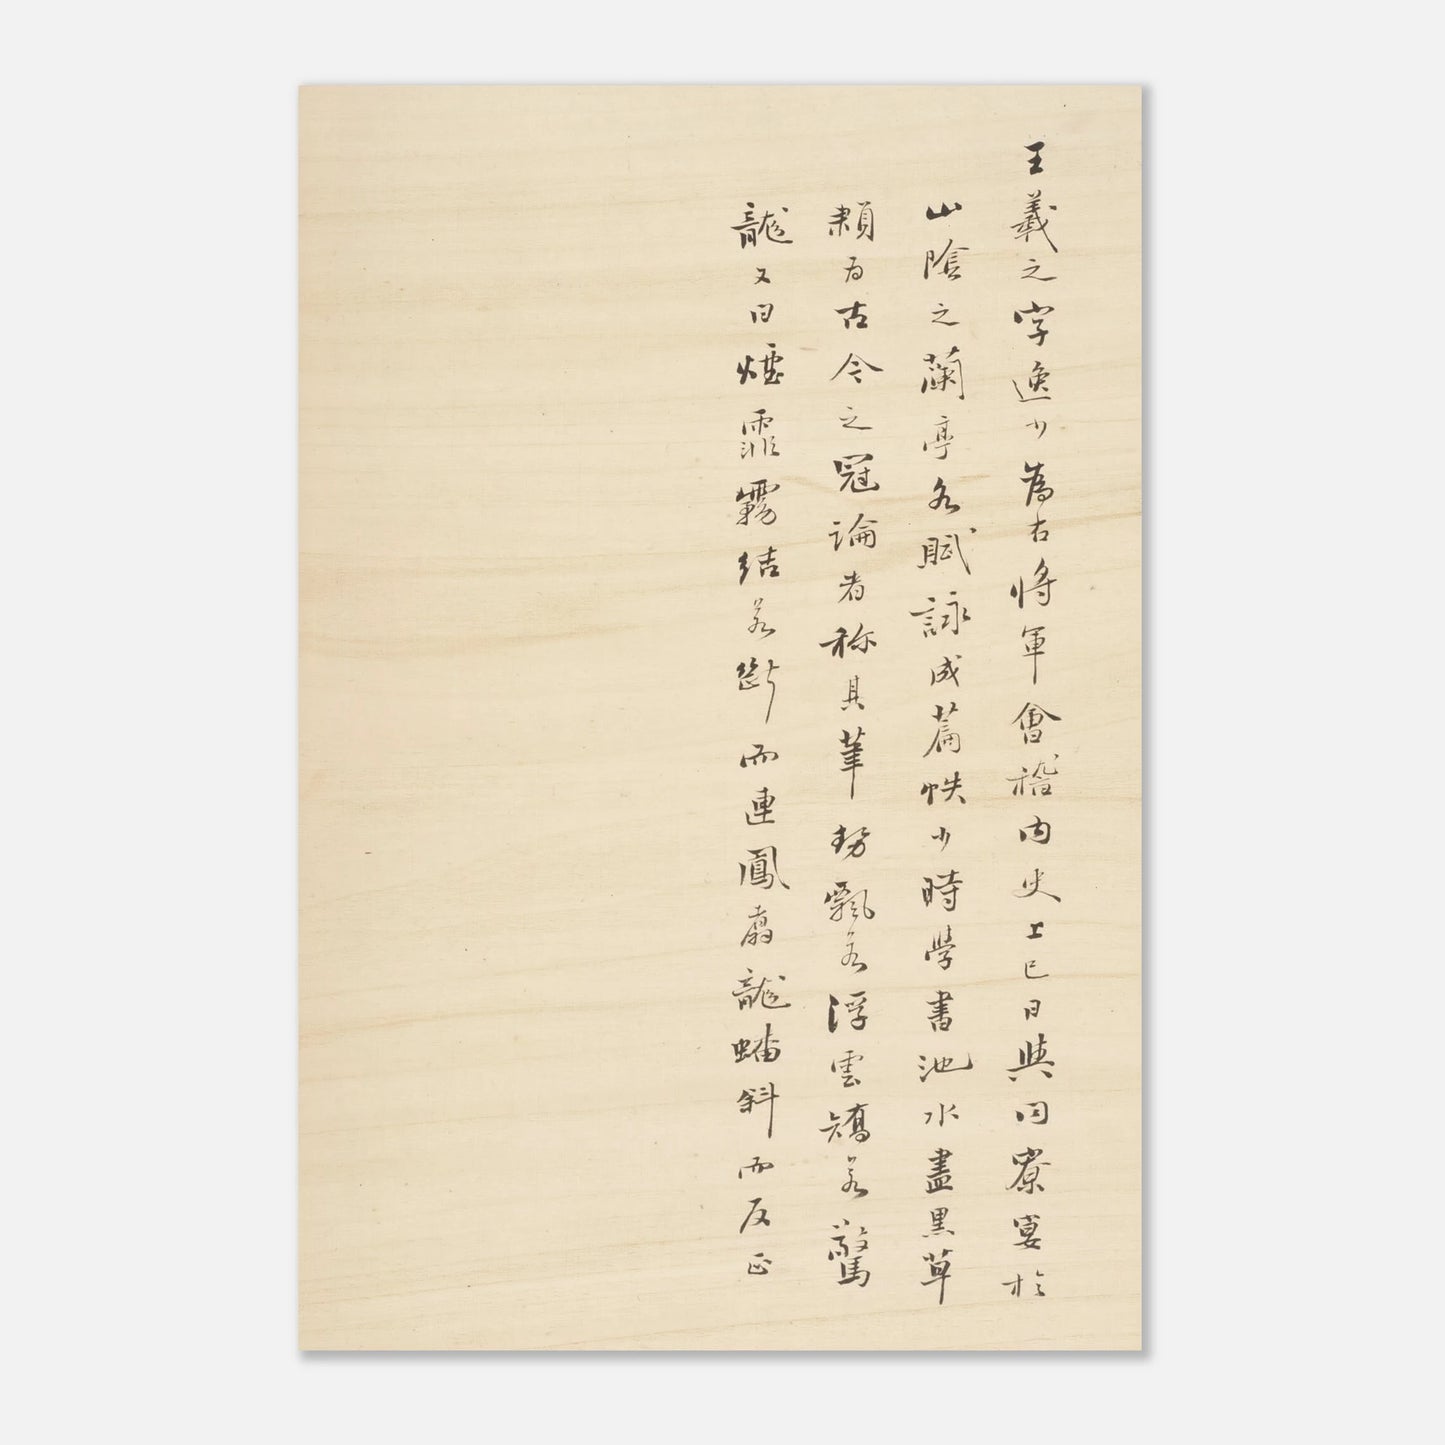 王羲之字逸少為右将軍會稽内史上巳日與同寮宴於
山陰之蘭亭各賦詠成篇帙少時學書池水盡黒草
隷為古今之冠論者称其筆勢飄若浮雲矯若驚
龍又曰煙霏霧結若断而連鳳翥龍蟠斜而反正